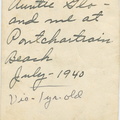 Auntie Glo -
and me at
Pontchartrain
Beach
July - 1940
Vic - 1 yr. old